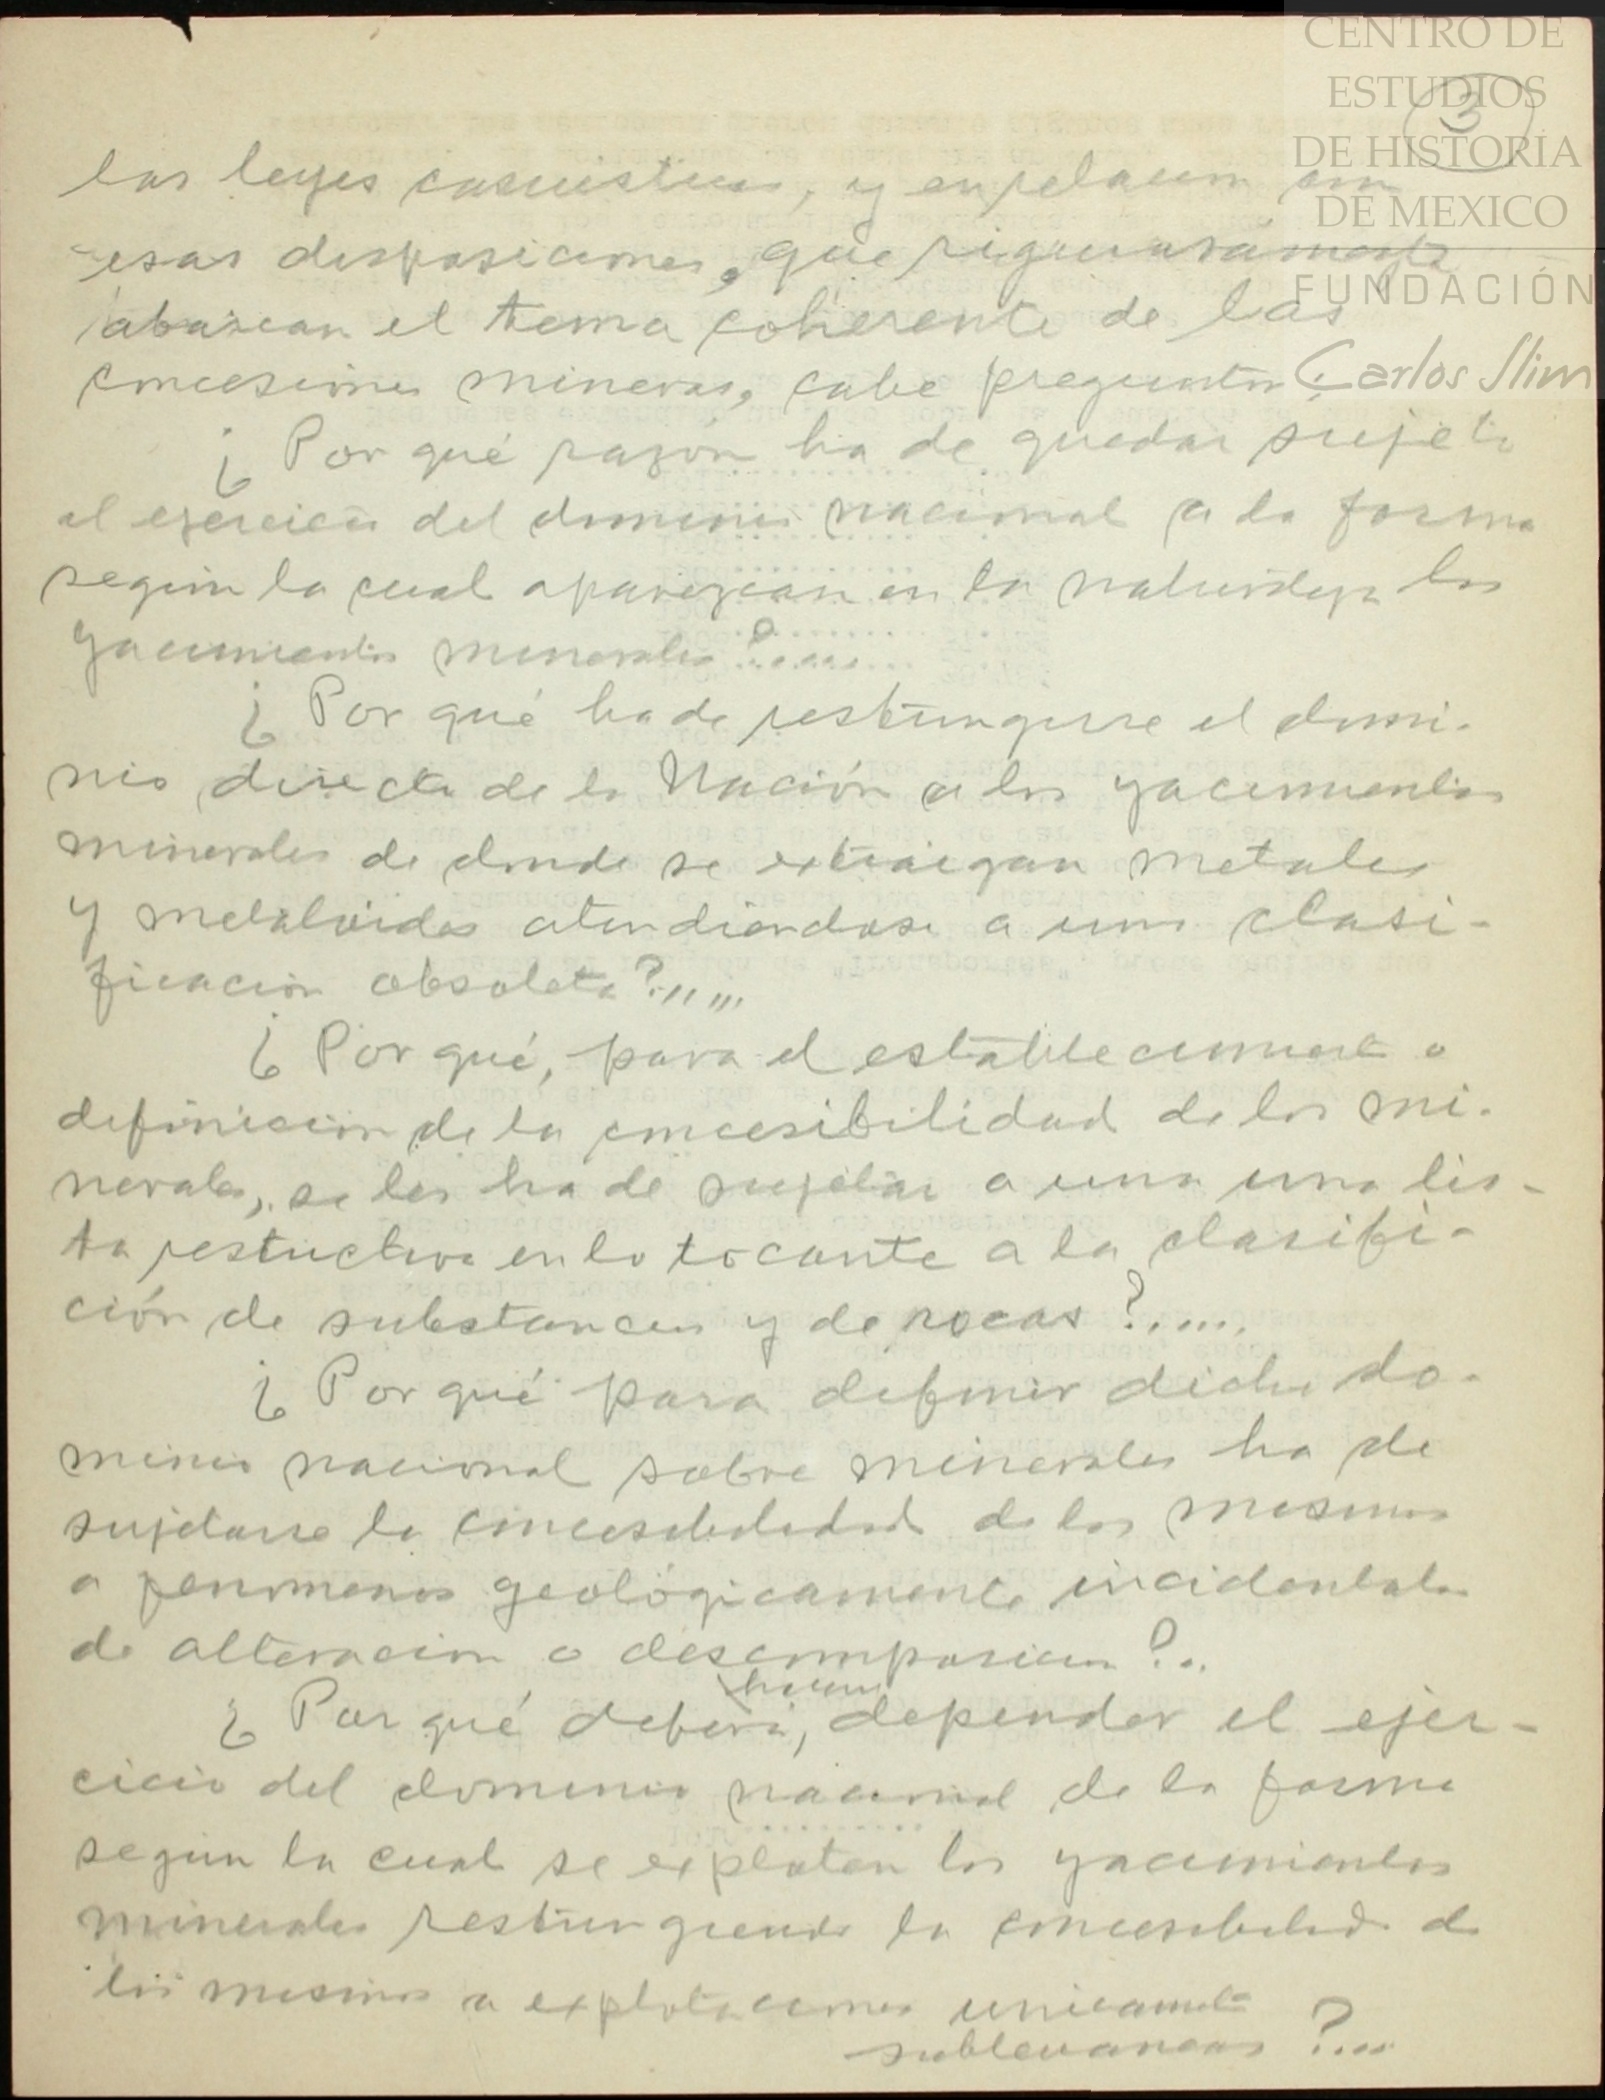 CENTRO DE
ESTUDIOS
DE HISTORIA
DE MEXICO
FUNDACIÓN
Carlos Slim
3
las leyes casuisticas, y en relacion con
esas disposiciones, que rigurosamente
abarcan el tema coherente de las
concesiones mineras, cabe preguntar:
¿Por qué razón ha de quedar sujeto
el ejercicio del dominio nacional a la forma
según la cual aparezcan en la naturaleza los
yacimientos minerales?.....
¿Por qué ha de restringirse el domi-
nio directo de la Nación a los yacimientos
minerales de donde se extraigan metales
y metaloides atendiendose a una clasi-
ficacion obsoleta?.....
¿Por qué, para el establecimiento o
definición de la concesibilidad de los mi-
nerales, se les ha de sujetar a una una lis-
ta restrictiva en lo tocante a la clasifi-
ción de substancias y de rocas?.....
¿Por qué para definir dicho do-
minio nacional sobre minerales ha de
sujetarse la concesibilidad de los mismos
a fenomenos geológicamente incidentales
de alteracion o descomposicion?..
¿Por qué deberá, depender el ejer-
cicio del dominio nacional de la forma
según la cual se exploten los yacimientos
minerales restringiendo la concesibilidad de
los mismos a explotaciones unicamente
?....